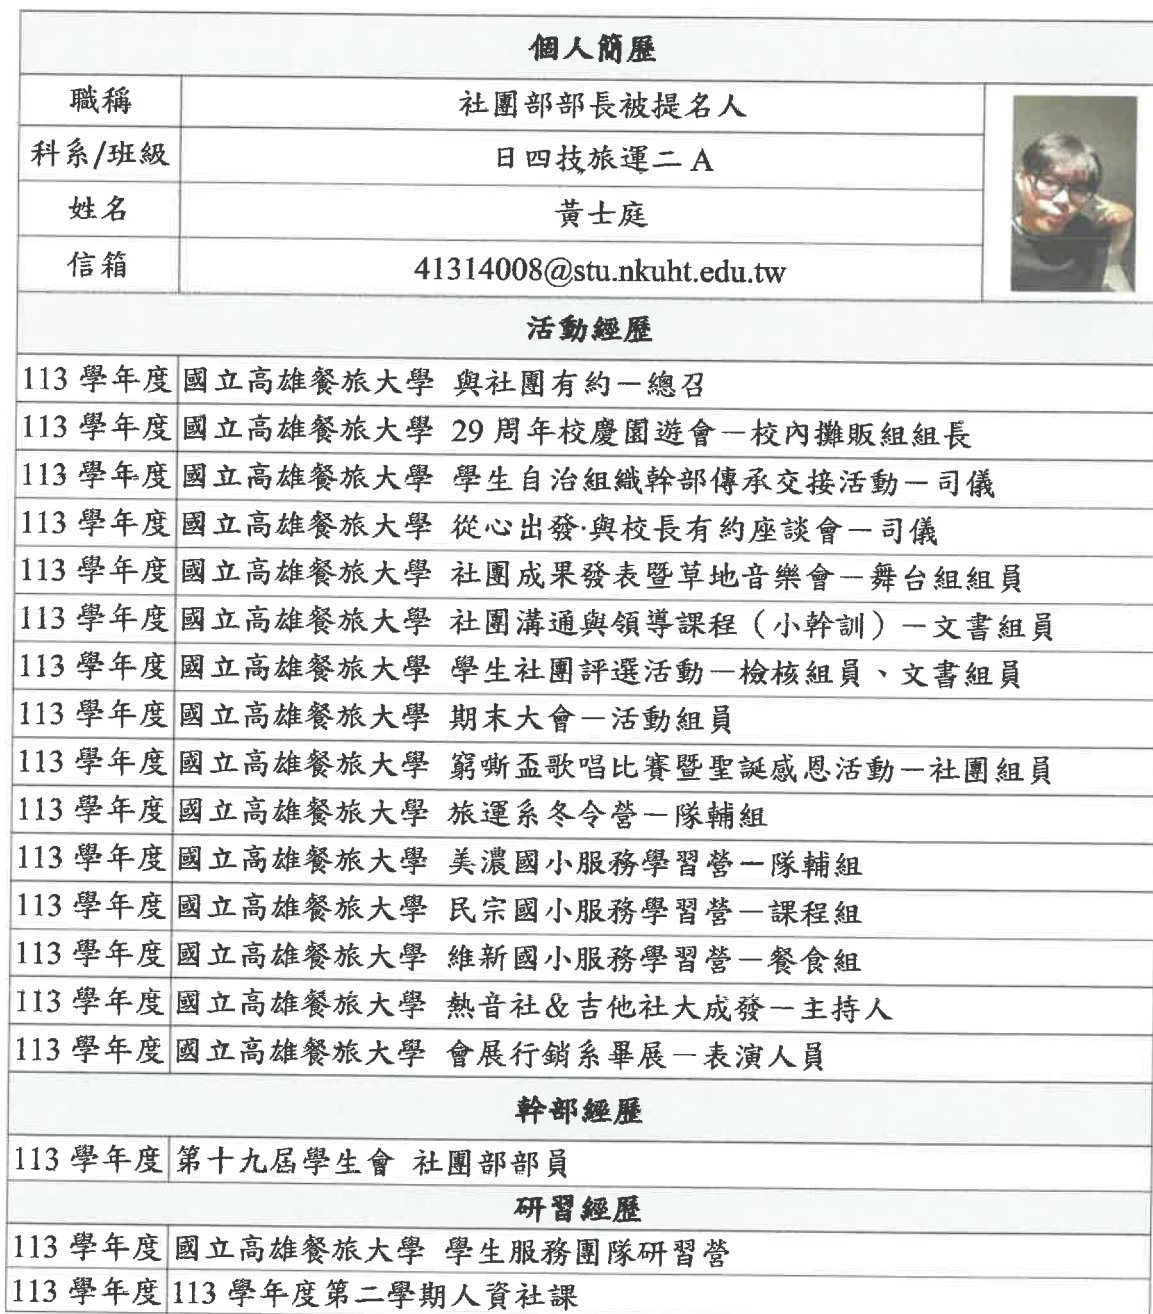 個人簡歷
職稱 社團部部長被提名人
科系/班級 日四技旅運二 A
姓名 黃士庭
信箱 41314008@stu.nkuht.edu.tw
活動經歷
113 學年度 國立高雄餐旅大學 與社團有約－總召
113 學年度 國立高雄餐旅大學 29 周年校慶園遊會－校內攤販組組長
113 學年度 國立高雄餐旅大學 學生自治組織幹部傳承交接活動－司儀
113 學年度 國立高雄餐旅大學 從心出發·與校長有約座談會－司儀
113 學年度 國立高雄餐旅大學 社團成果發表暨草地音樂會－舞台組組員
113 學年度 國立高雄餐旅大學 社團溝通與領導課程（小幹訓）－文書組員
113 學年度 國立高雄餐旅大學 學生社團評選活動－檢核組員、文書組員
113 學年度 國立高雄餐旅大學 期末大會－活動組員
113 學年度 國立高雄餐旅大學 窮嘶盃歌唱比賽暨聖誕感恩活動－社團組員
113 學年度 國立高雄餐旅大學 旅運系冬令營－隊輔組
113 學年度 國立高雄餐旅大學 美濃國小服務學習營－隊輔組
113 學年度 國立高雄餐旅大學 民宗國小服務學習營－課程組
113 學年度 國立高雄餐旅大學 維新國小服務學習營－餐食組
113 學年度 國立高雄餐旅大學 熱音社&吉他社大成發－主持人
113 學年度 國立高雄餐旅大學 會展行銷系畢展－表演人員
幹部經歷
113 學年度 第十九屆學生會 社團部部員
研習經歷
113 學年度 國立高雄餐旅大學 學生服務團隊研習營
113 學年度 113 學年度第二學期人資社課